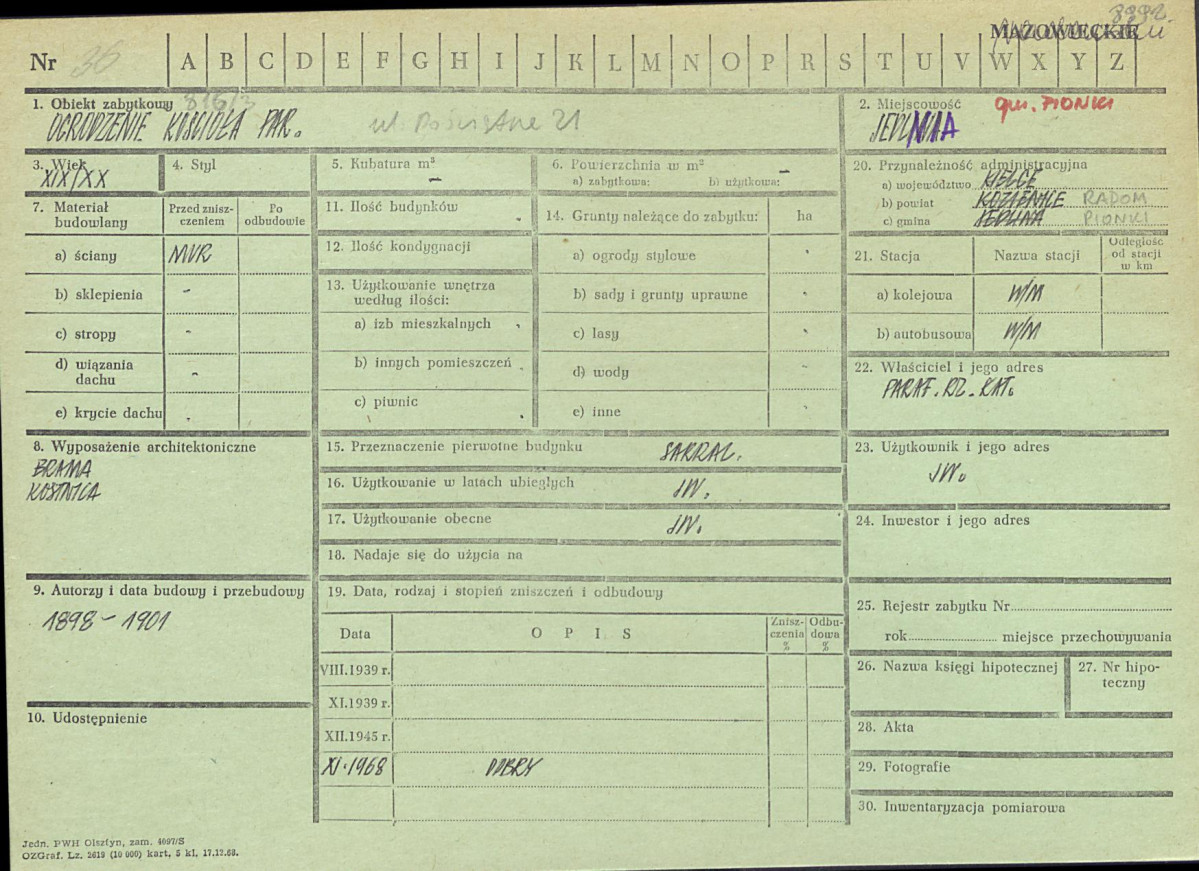 3992
MAZOWIECKIE
Nr 36 A B C D E F G H I J K L M N O P R S T U V W X Y Z
1. Obiekt zabytkowy 816/3
OGRODZENIE KOŚCIOŁA PAR. ul. Poświętne 21
2. Miejscowość gm. PIONKI
JEDLNIA
3. Wiek
XIX/XX
4. Styl
5. Kubatura m³
–
6. Powierzchnia w m² –
a) zabytkowa: b) użytkowa:
20. Przynależność administracyjna
a) województwo KIELCE
b) powiat KOZIENICE RADOM
c) gmina JEDLNIA PIONKI
7. Materiał budowlany
Przed zniszczeniem
Po odbudowie
a) ściany MUR
b) sklepienia -
c) stropy -
d) wiązania dachu -
e) krycie dachu
11. Ilość budynków
12. Ilość kondygnacji
13. Użytkowanie wnętrza według ilości:
a) izb mieszkalnych
b) innych pomieszczeń
c) piwnic
14. Grunty należące do zabytku: ha
a) ogrody stylowe
b) sady i grunty uprawne
c) lasy
d) wody
e) inne
21. Stacja Nazwa stacji Odległość od stacji w km
a) kolejowa W/M
b) autobusowa W/M
22. Właściciel i jego adres
PARAF. RZ. KAT.
8. Wyposażenie architektoniczne
BRAMA
KOSTNICA
15. Przeznaczenie pierwotne budynku SAKRAL.
16. Użytkowanie w latach ubiegłych JW.
17. Użytkowanie obecne JW.
18. Nadaje się do użycia na
23. Użytkownik i jego adres
JW.
24. Inwestor i jego adres
9. Autorzy i data budowy i przebudowy
1898 - 1901
10. Udostępnienie
19. Data, rodzaj i stopień zniszczeń i odbudowy
Data OPIS Zniszczenia % Odbudowa %
VIII.1939 r.
XI.1939 r.
XII.1945 r.
XI.1968 DOBRY
25. Rejestr zabytku Nr
rok miejsce przechowywania
26. Nazwa księgi hipotecznej
27. Nr hipoteczny
28. Akta
29. Fotografie
30. Inwentaryzacja pomiarowa
Jedn. PWH Olsztyn, zam. 4097/S
OZGraf. Lz. 2619 (10 000) kart, 5 kl, 17.12.68.